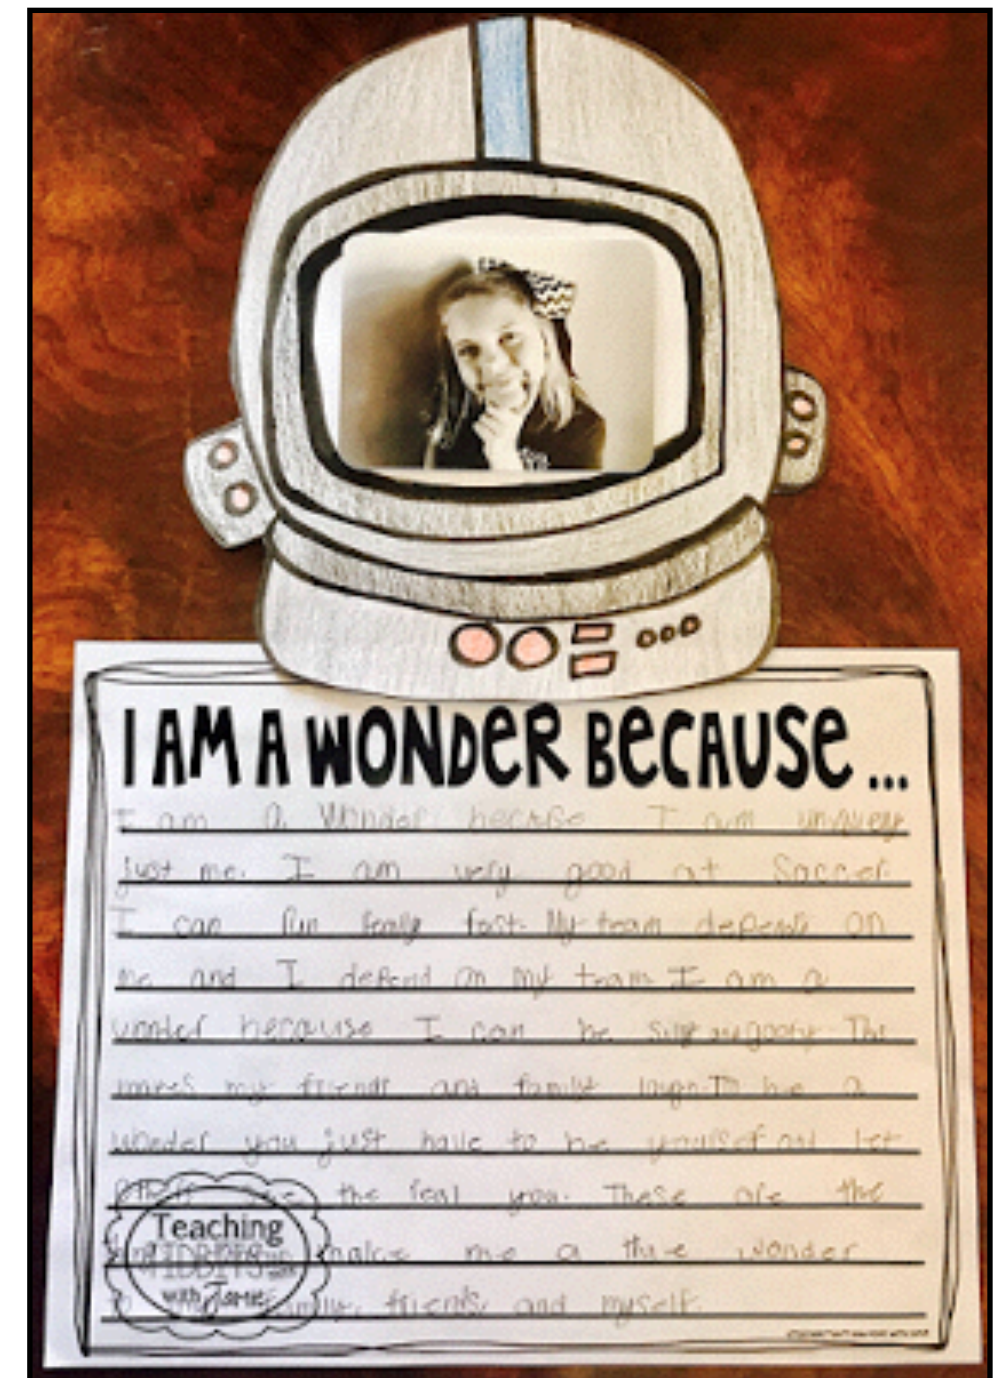 I AM A WONDER BECAUSE...
I am a Wonder because I am
just me. I am very good at Soccer.
I can run really fast. My team depends on
me and I depend on my team I am a
wonder because I can be silly and goofy. This
makes my friends and family laugh. To be a
wonder you just have to be yourself and let
the real you. These are the
make me a true wonder
family, friends, and myself.
Teaching
TIDBITS
with Jamie